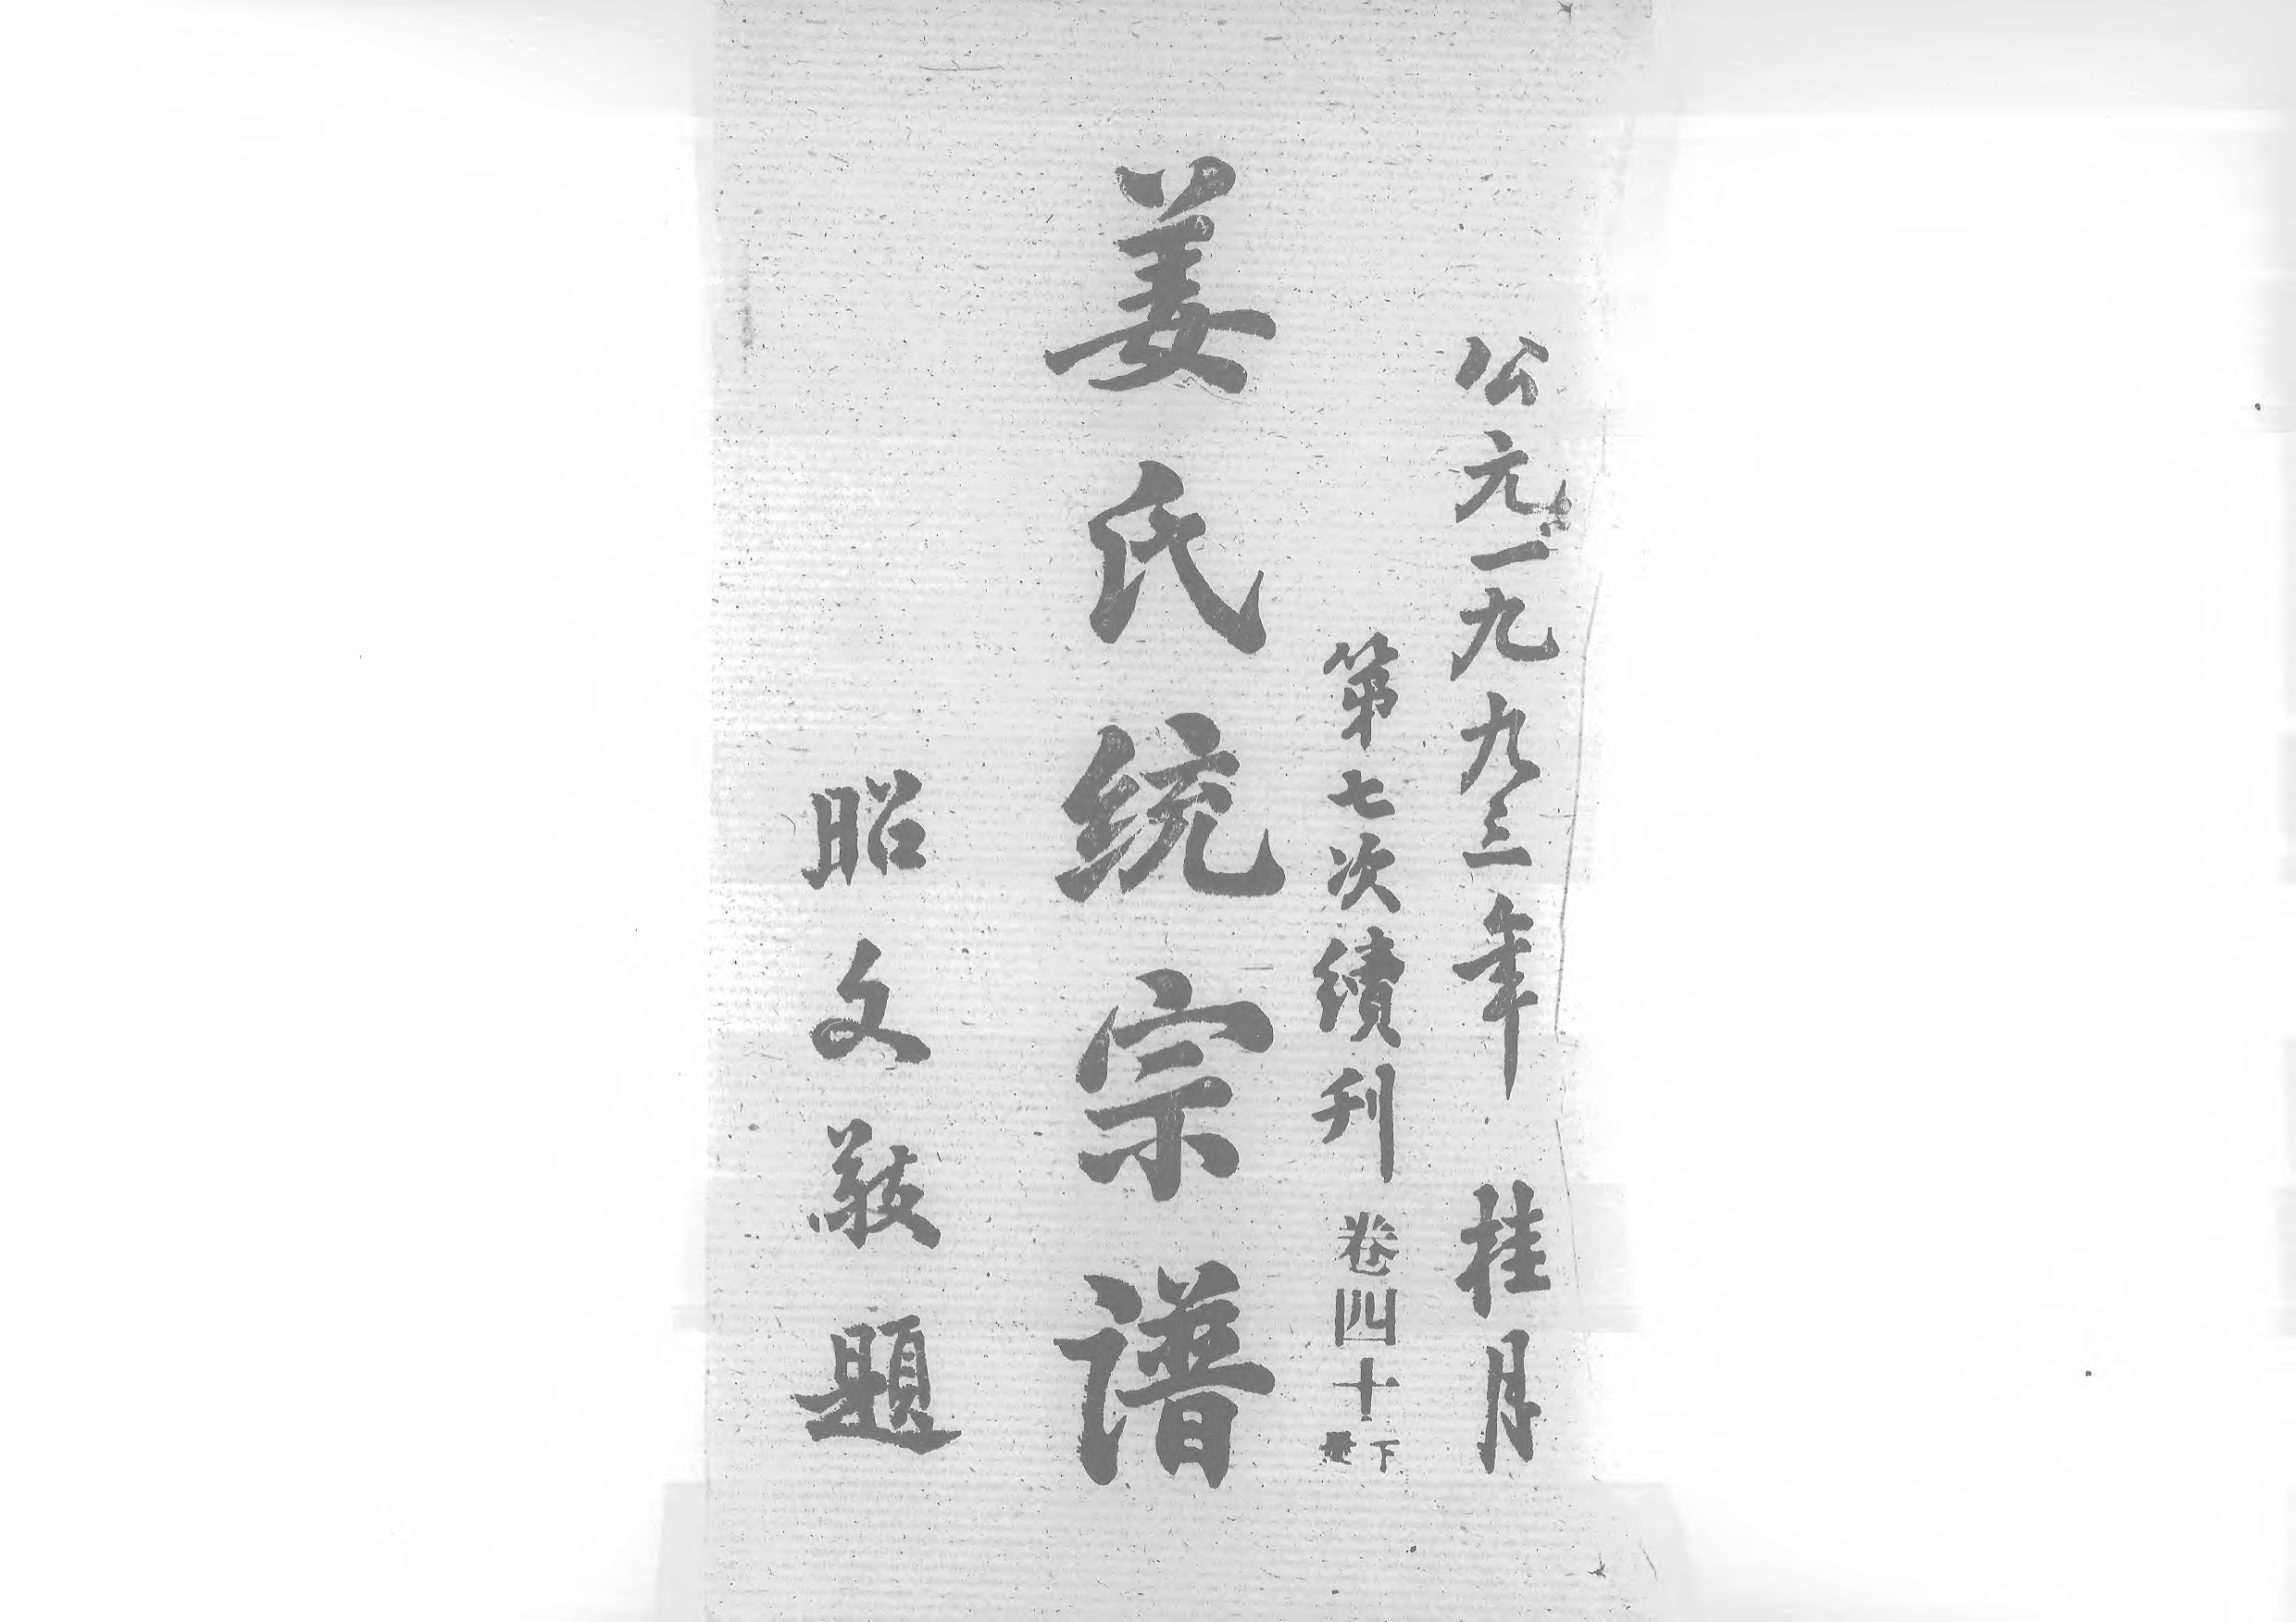 公元一九九三年 桂月
第七次續刊 卷四十下册
姜氏统宗谱
昭文敬題